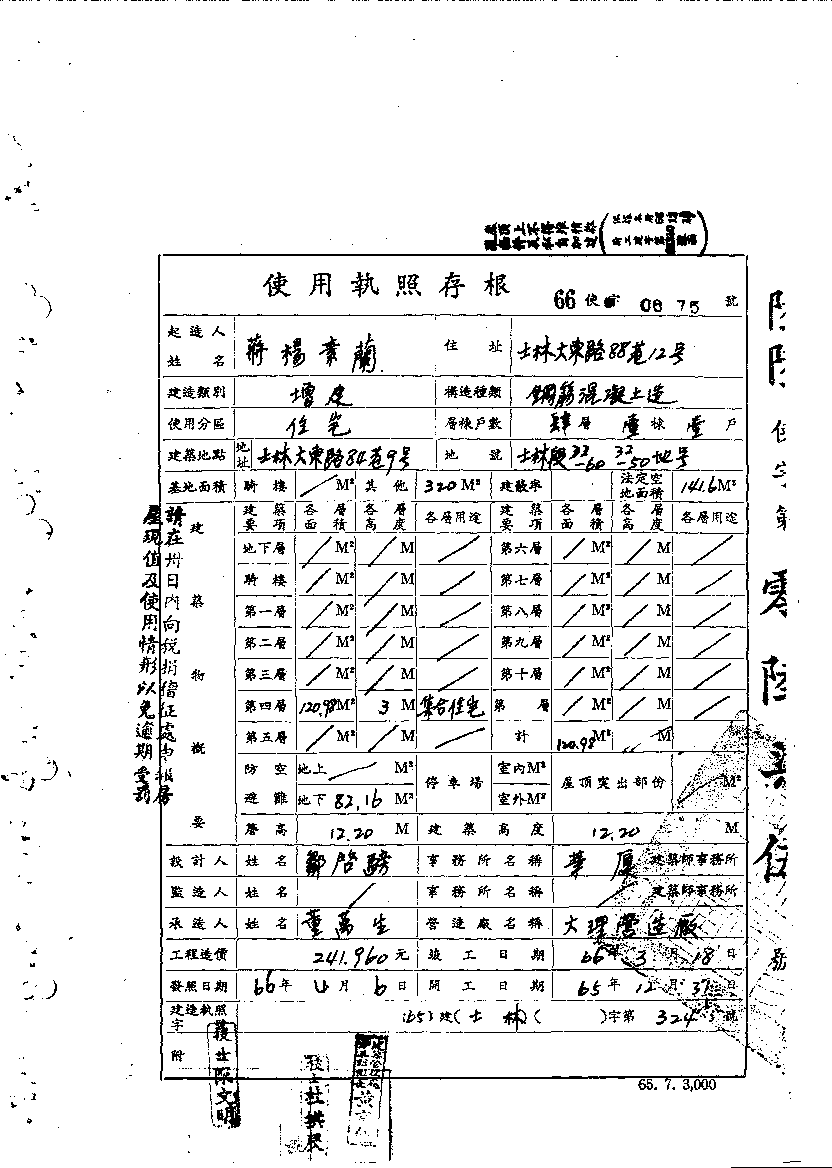 使用執照存根 66 使字 0875 號
起造人姓名 蔣楊素蘭 住址 士林大東路88巷12号
建造類別 增建 構造種類 鋼筋混凝土造
使用分區 住宅 層棟戶數 肆層壹棟壹戶
建築地點 地址 士林大東路84巷9号 地號
基地面積 騎樓 M² 其他 320 M² 建蔽率 法定空地面積 141.6M²
建築物概要
建築要項 各層面積 各層高度 各層用途 建築要項 各層面積 各層高度 各層用途
地下層 M² M 第六層 M² M
騎樓 M² M 第七層 M² M
第一層 M² M 第八層 M² M
第二層 M² M 第九層 M² M
第三層 M² M 第十層 M² M
第四層 120.98M² 3 M 集合住宅 第 層 M² M
第五層 M² M 計 120.98M² M
防空避難 地上 M² 停車場 室內M² 屋頂突出部份 M²
地下 82.16 M² 室外M²
簷高 12.20 M 建築高度 12.20 M
設計人 姓名 事務所名稱 華廈 建築師事務所
監造人 姓名 事務所名稱 建築師事務所
承造人 姓名 董萬生 營造廠名稱 大環營造廠
工程造價 241.960 元 竣工日期 66年 3月 18日
發照日期 66年 4月 6日 開工日期 65年 12月 31日
建造執照字 (65)建(士林)( )字第 324 號
附
65. 7. 3,000
請在卅日內向稅捐稽征處申報房
屋現值及使用情形以免逾期受罰
技士陳文明